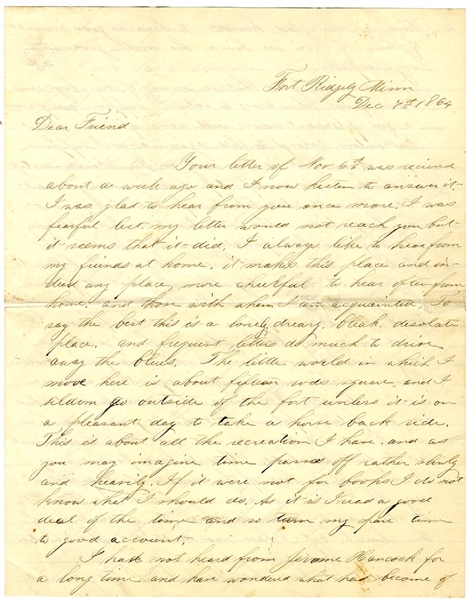 Fort Ridgely Minn
Dec 4th 1864
Dear Friend
Your letter of Nov 6th was received
about a week ago and I now hasten to answer it
I was glad to hear from you once more, I was
fearful lest my letter would not reach you, but
it seems that it did. I always like to hear from
my friends at home. it makes this place and in-
deed any place, more cheerful to hear often from
home and those with whom I am acquainted. To
say the best this is a lonely, dreary, bleak, desolate
place. and frequent letters do much to drive
away the blues. The little world in which I
move here is about fifteen rods square, and I
seldom go outside of the fort unless it is on
a pleasant day to take a horse back ride.
This is about all the recreation I have. and as
you may imagine time passes off rather slowly
and heavily. If it were not for books I do not
know what I should do. As it is I read a good
deal of the time and so turn my spare time
to good account.
I have not heard from Jerome Hancock for
a long time and have wondered what had become of